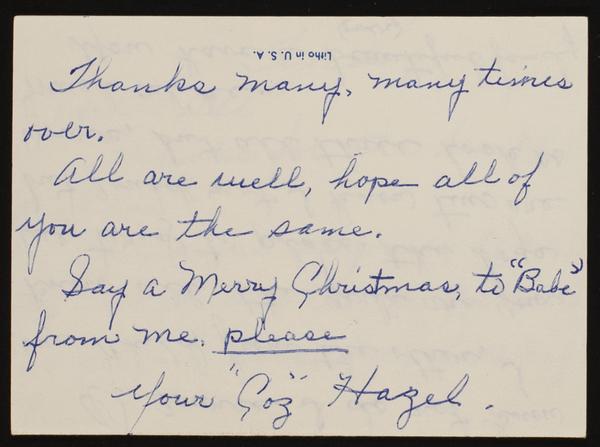 Litho in U. S. A.
Thanks many, many times
over.
All are well, hope all of
you are the same.
Say a Merry Christmas, to "Babe"
from me. please
Your "Coz" Hazel.